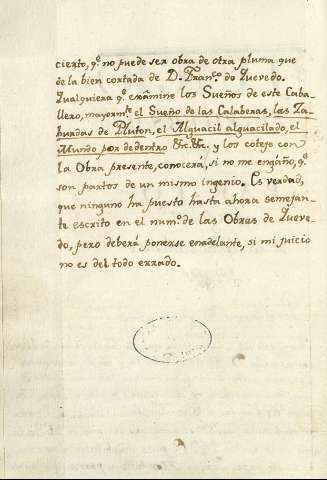 cierto, q.e no puede ser obra de otra pluma que
de la bien cortada de D. Fran.co de Quevedo.
Qualquiera q.e exâmine los Sueños de este Caba-
llero, mayorm.te el Sueño de las Calaberas, las Za-
hurdas de Pluton, el Alguacil alguacilado, el
Mundo por de dentro &c. &c. y los coteje con
la Obra presente, conocerá, si no me engaño, q.e
son partos de un mismo ingenio. Es verdad,
que ninguno ha puesto hasta ahora semejan-
te escrito en el num.o de las Obras de Queve-
do, pero deberá ponerse en adelante, si mi juicio
no es del todo errado.